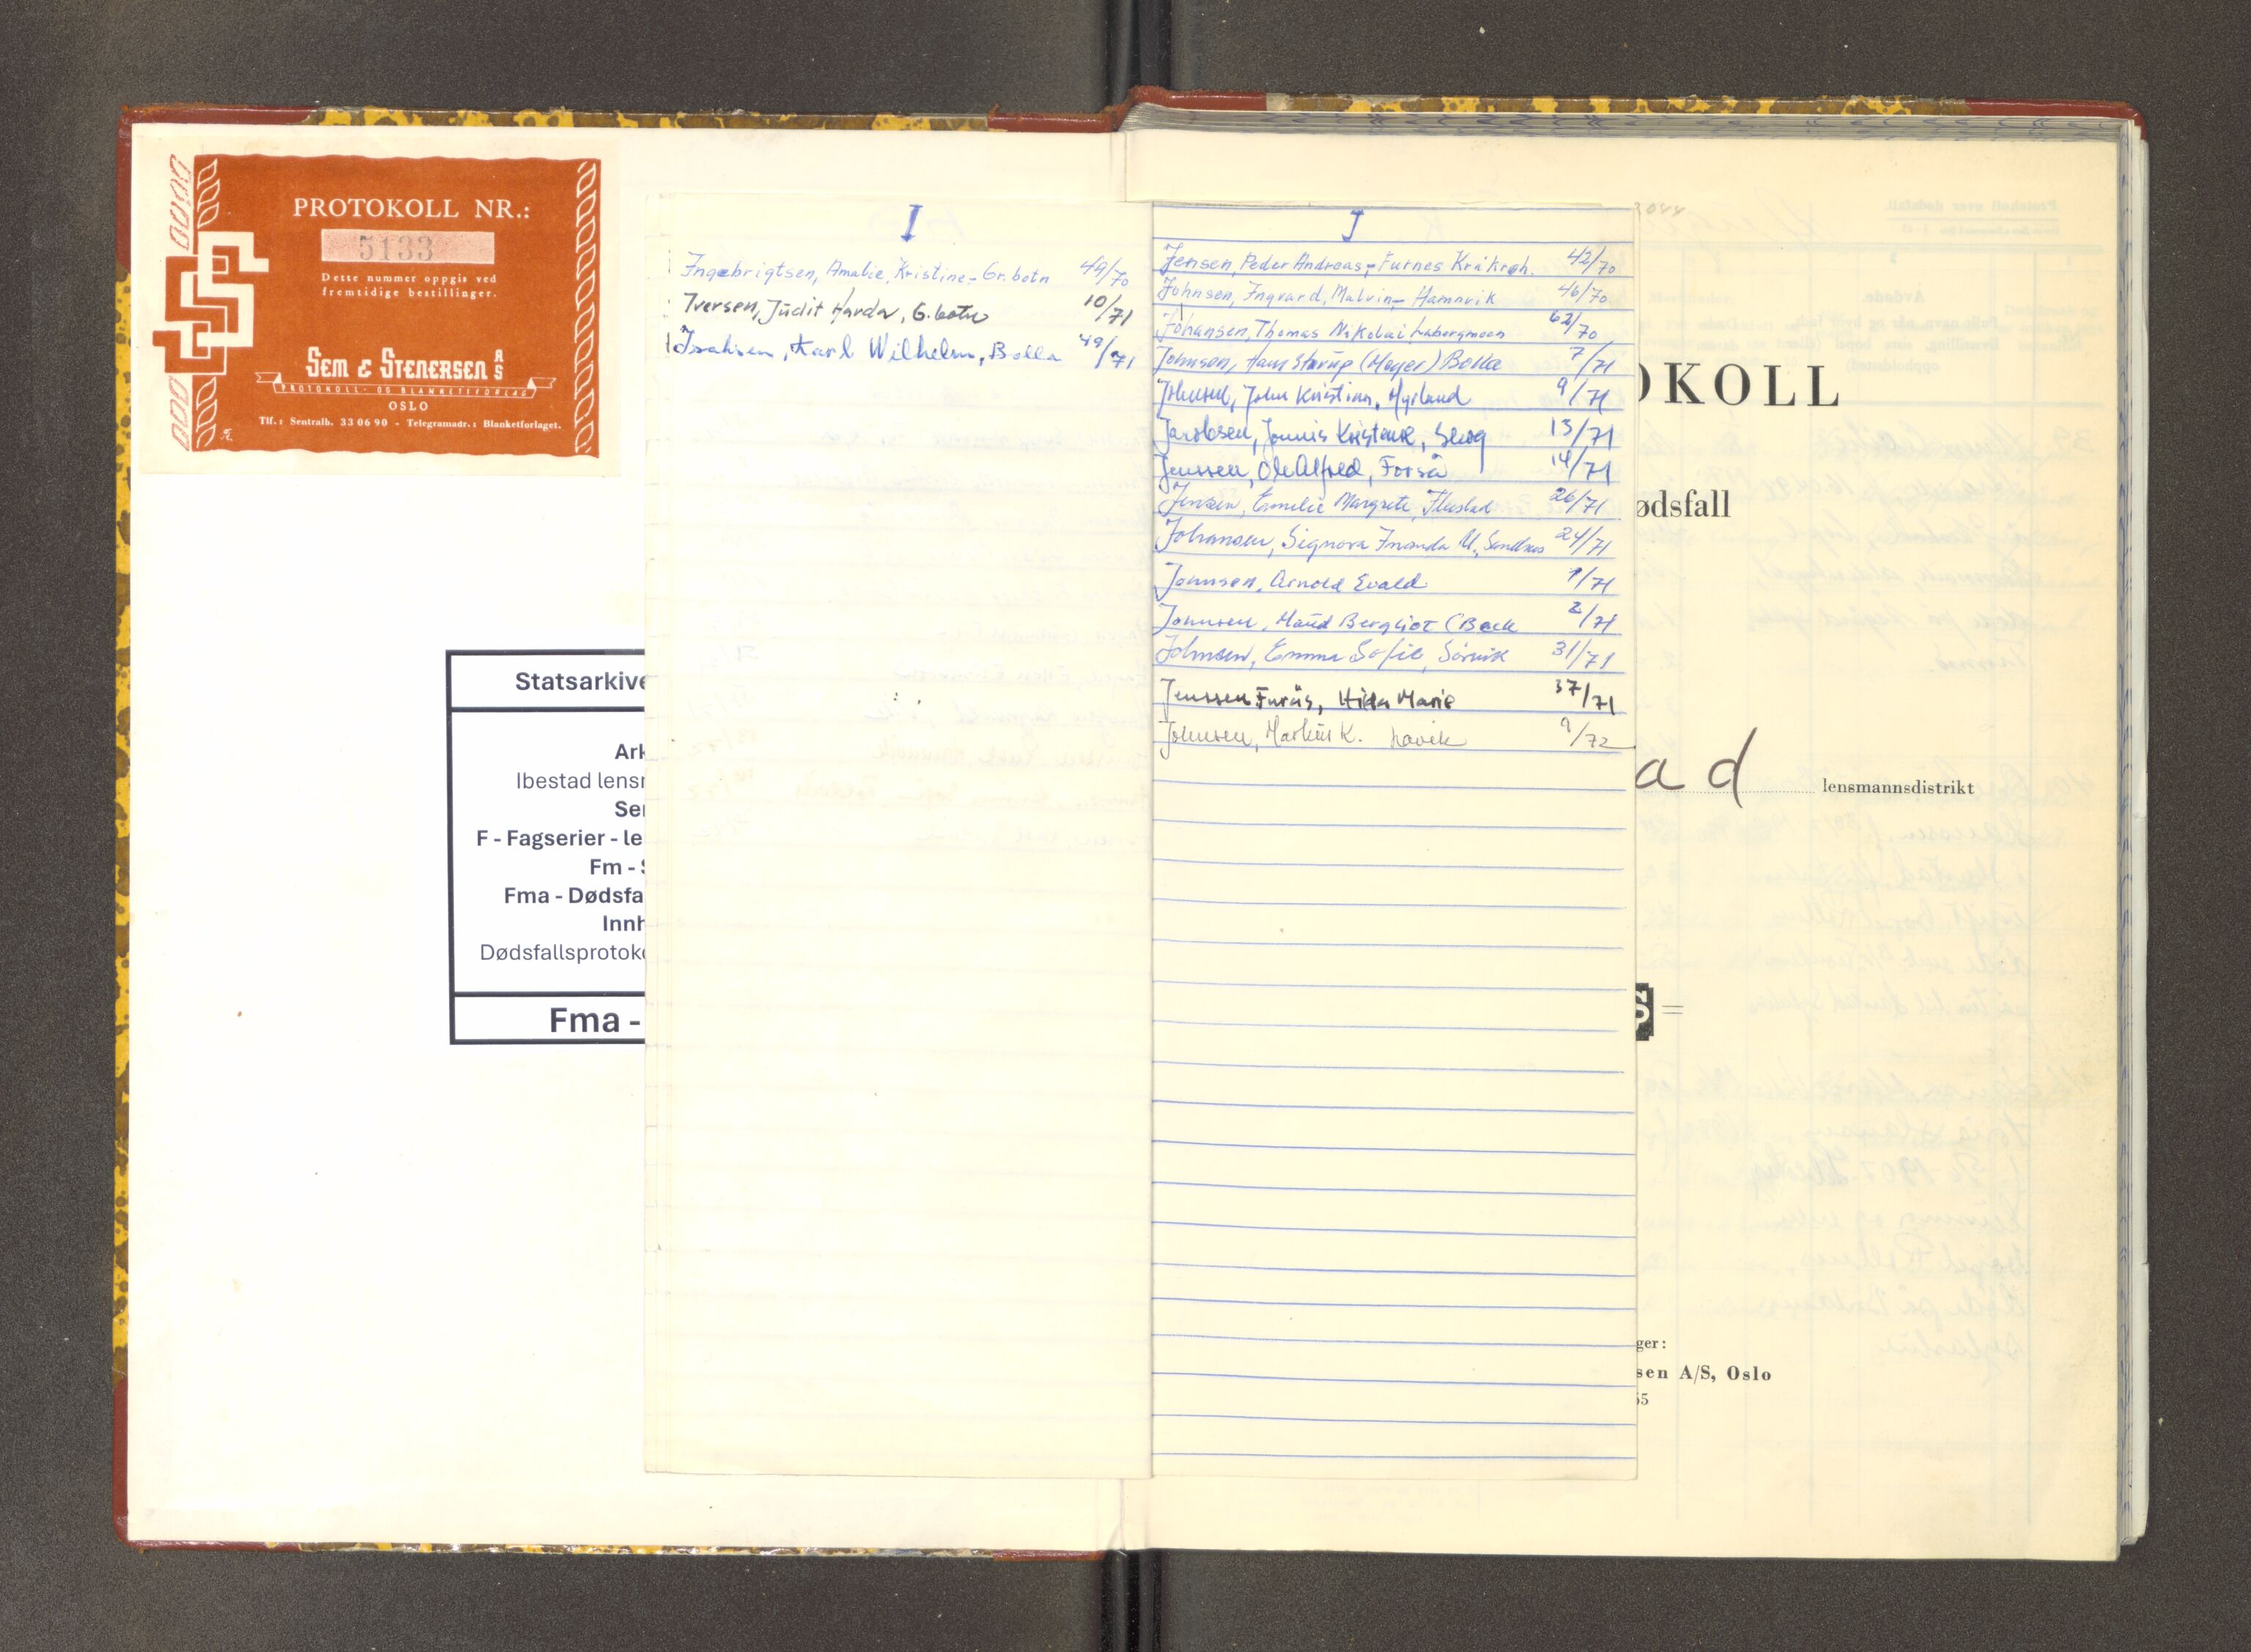 PROTOKOLL NR.:
5133
Dette nummer oppgis ved
fremtidige bestillinger.
SEM & STENERSEN A/S
PROTOKOLL- OG BLANKETTFORLAG
OSLO
Tlf.: Sentralb. 33 06 90 - Telegramadr.: Blanketforlaget.
Statsarkive
Ark
Ibestad lensm
Ser
F - Fagserier - le
Fm - S
Fma - Dødsfa
Innh
Dødsfallsprotoko
Fma -
I
Ingebrigtsen, Amalie, Kristine - Gr.botn 49/70
Iversen, Judit Harda, G.botn 10/71
Isaksen, Karl Wilhelm, Bolla 49/71
J
Jensen, Peder Andreas - Furnes Kråkrøh. 42/70
Johnsen, Ingvard, Malvin - Hamnvik 46/70
Johansen, Thomas Nikolai Labergmoen 62/70
Johnsen, Hans Størup (Meyer) Bolla 7/71
Johnsen, John Kristian, Myrlund 9/71
Jacobsen, Jonnis Kristense, Skog 13/71
Jenssen, Ole Alfred, Forså 14/71
Jensen, Emilie Margrete, Ibestad 26/71
Johansen, Signora Inanda M., Sandnes 24/71
Johnsen, Arnold Evald 1/71
Johnsen, Maud Bergliot (Beck 2/71
Johnsen, Emma Sofie, Sørvik 31/71
Jenssen Furås, Hilda Marie 37/71
Johnsen, Markus K. Løvik 9/72
OKOLL
ødsfall
ad lensmannsdistrikt
S =
ger:
sen A/S, Oslo
55
Protokoll over dødsfall.
Avdøde.